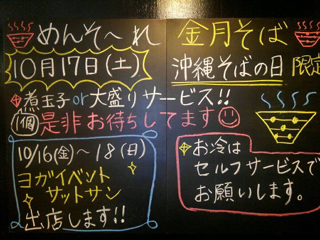 めんそ〜れ
10月17日(土)
煮玉子or大盛りサービス!!
1個
是非お待ちしてます
10/16(金)〜18(日)
ヨガイベント
サットサン
出店します!!
金月そば
沖縄そばの日 限定
お冷は
セルフサービスで
お願いします。